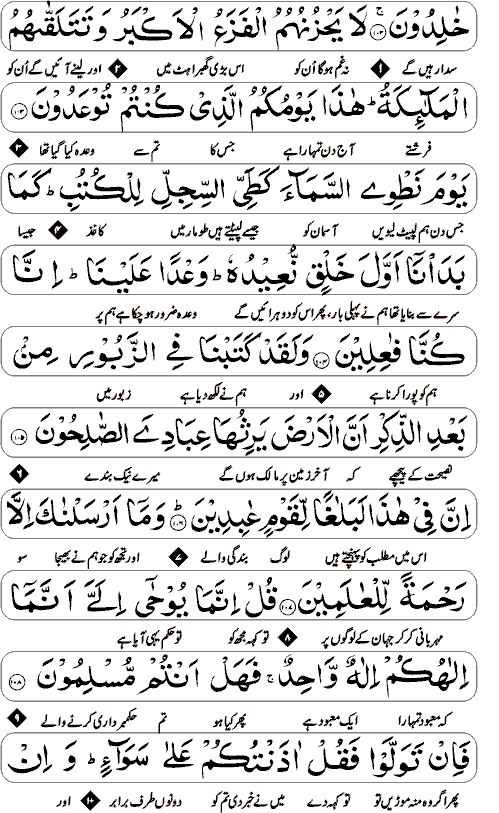 خٰلِدُوْنَ ۚ ﴿۱۰۲﴾ لَا يَحْزُنُهُمُ الْفَزَعُ الْاَكْبَرُ وَتَتَلَقّٰىهُمُ
سدا رہیں گے ۱ نہ غم ہوگا اُن کو اس بڑی گھبراہٹ میں ۲ اور لینے آئیں گے اُن کو
الْمَلٰٓئِكَةُ ؕ هٰذَا يَوْمُكُمُ الَّذِىْ كُنْتُمْ تُوْعَدُوْنَ ﴿۱۰۳﴾
فرشتے آج دن تمہارا ہے جس کا تم سے وعدہ کیا گیا تھا ۳
يَوْمَ نَطْوِى السَّمَآءَ كَطَىِّ السِّجِلِّ لِلْكُتُبِ ؕ كَمَا
جس دن ہم لپیٹ لیویں آسمان کو جیسے لپیٹتے ہیں طومار میں کاغذ ۴ جیسا
بَدَاْنَاۤ اَوَّلَ خَلْقٍ نُّعِيْدُهٗ ؕ وَعْدًا عَلَيْنَا ؕ اِنَّا
سرے سے بنایا تھا ہم نے پہلی بار، پھر اس کو دوہرائیں گے وعدہ ضرور ہو چکا ہے ہم پر
كُنَّا فٰعِلِيْنَ ﴿۱۰۴﴾ وَلَقَدْ كَتَبْنَا فِى الزَّبُوْرِ مِنْۢ
ہم کو پورا کرنا ہے ۵ اور ہم نے لکھ دیا ہے زبور میں
بَعْدِ الذِّكْرِ اَنَّ الْاَرْضَ يَرِثُهَا عِبَادِىَ الصّٰلِحُوْنَ ﴿۱۰۵﴾
نصیحت کے پیچھے کہ آخر زمین پر مالک ہوں گے میرے نیک بندے ۶
اِنَّ فِىْ هٰذَا لَبَلٰغًا لِّقَوْمٍ عٰبِدِيْنَ ؕ ﴿۱۰۶﴾ وَمَاۤ اَرْسَلْنٰكَ اِلَّا
اس میں مطلب کو پہنچتے ہیں لوگ بندگی والے ۷ اور تجھ کو جو ہم نے بھیجا سو
رَحْمَةً لِّلْعٰلَمِيْنَ ﴿۱۰۷﴾ قُلْ اِنَّمَا يُوْحٰۤى اِلَىَّ اَنَّمَاۤ
مہربانی کر کر جہان کے لوگوں پر ۸ تو کہہ مجھ کو تو حکم یہی آیا ہے
اِلٰهُكُمْ اِلٰهٌ وَّاحِدٌ ۚ فَهَلْ اَنْتُمْ مُّسْلِمُوْنَ ﴿۱۰۸﴾
کہ معبود تمہارا ایک معبود ہے پھر کیا ہو تم حکمبرداری کرنے والے ۹
فَاِنْ تَوَلَّوْا فَقُلْ اٰذَنْتُكُمْ عَلٰى سَوَآءٍ ؕ وَ اِنْ
پھر اگر وہ منہ موڑیں تو تو کہہ دے میں نے خبر دی تم کو دونوں طرف برابر ۱۰ اور